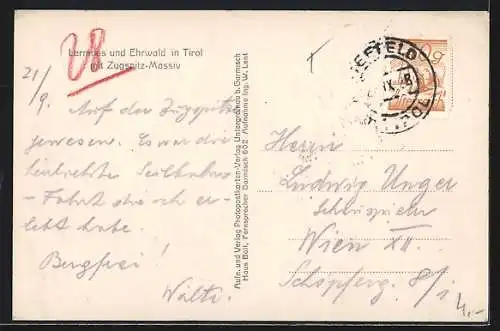 Lermoos und Ehrwald in Tirol
mit Zugspitz-Massiv
28
21/9.
Auf der Zugspitze
gewesen. Es war die
herrlichste Seilbahn-
Fahrt die ich er-
lebt habe.
Bergfrei!
Walti.
Aufn. und Verlag Photopostkarten-Verlag Untergrainau b. Garmisch
Haus Bolt, Fernsprecher Garmisch 602 Aufnahme Ing. W. Lant
SEEFELD
TIROL
IX
Herrn
Ludwig Unger
Schauspieler
Wien XII.
Schöpferg. 8/1
4.-